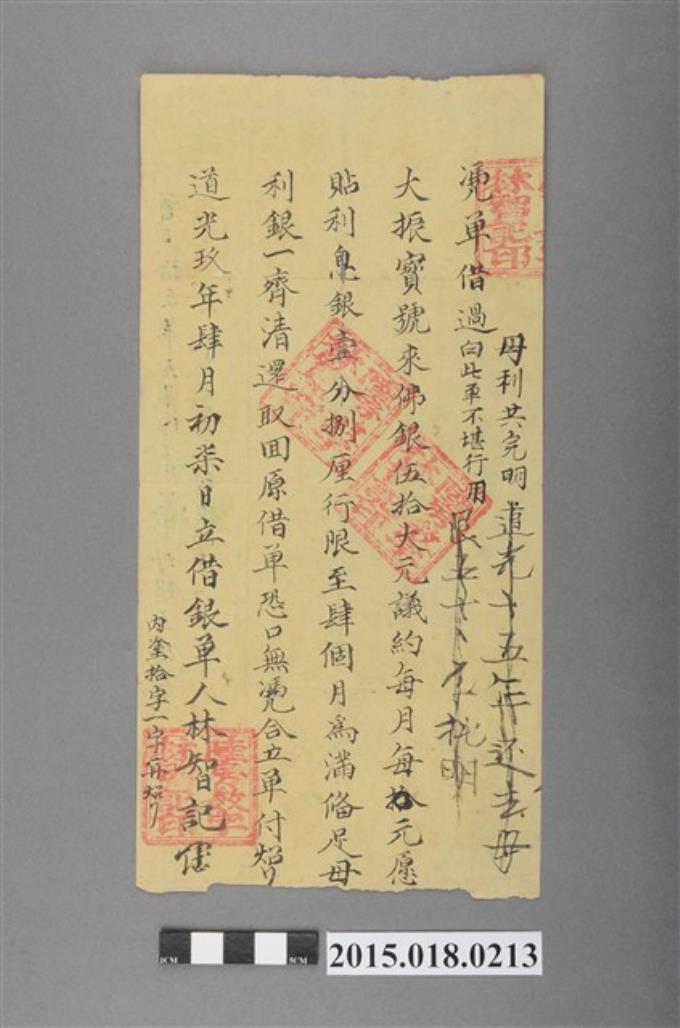 母利共完明
道光十五年还去母
憑单借過
向此单不堪行用
大振寳號来佛銀伍拾大元議約每月每拾元愿
貼利息銀壹分捌厘行限至肆個月為滿俻足母
利銀一齊清還取回原借单恐口無憑合立单付炤
道光玖年肆月初柒日立借銀单人林智記
内塗拾字一字再炤
1CM
5CM
2015.018.0213